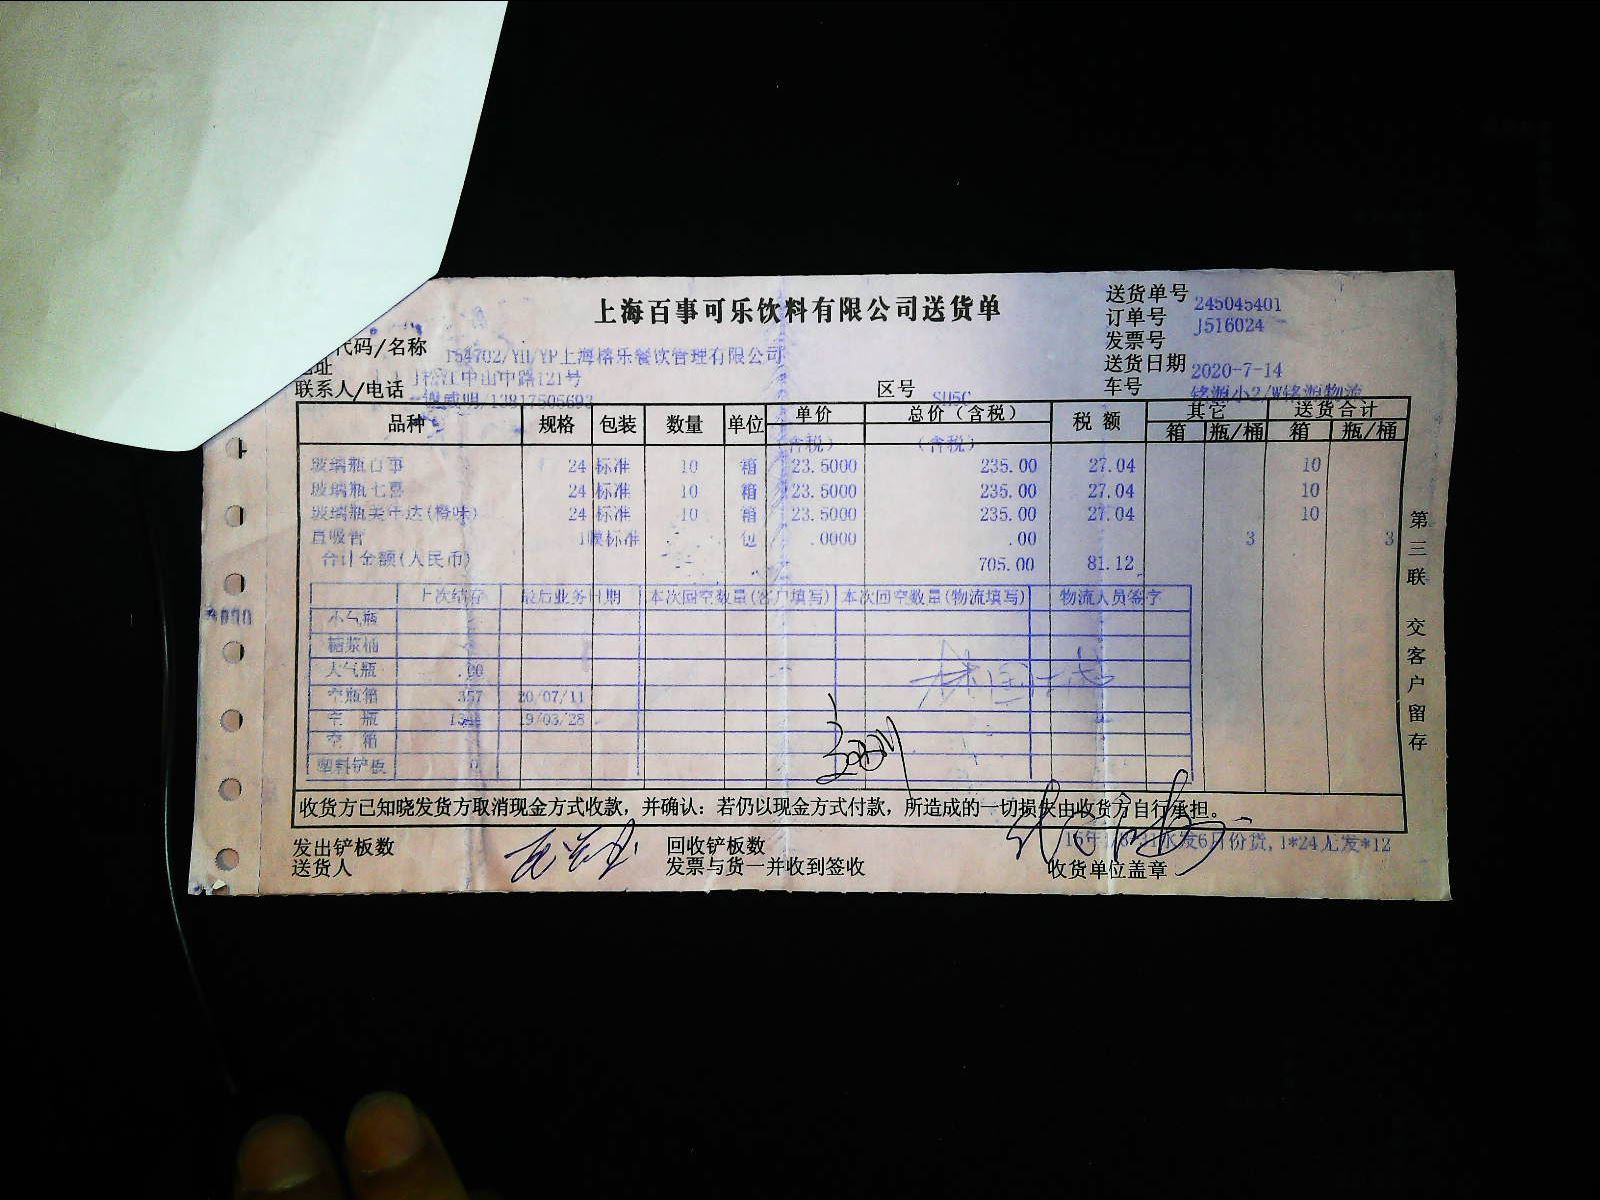 上海百事可乐饮料有限公司送货单
送货单号 245045401
订单号 J516024
发票号
送货日期 2020-7-14
车号 铭源小2/W铭源物流
代码/名称 154702/YH/YP上海榕乐餐饮管理有限公司
地址 松江中山中路121号
联系人/电话 13817505693 区号 SH5C
品种 规格 包装 数量 单位 单价 总价（含税） 税额 其它 送货合计
箱 瓶/桶 箱 瓶/桶
(含税) (含税)
玻璃瓶百事 24 标准 10 箱 23.5000 235.00 27.04 10
玻璃瓶七喜 24 标准 10 箱 23.5000 235.00 27.04 10
玻璃瓶美年达(橙味) 24 标准 10 箱 23.5000 235.00 27.04 10
直吸管 标准 包 .0000 .00 3 3
合计金额(人民币) 705.00 81.12
上次结存 最后业务日期 本次回空数量(客户填写) 本次回空数量(物流填写) 物流人员签字
小气瓶
糖浆桶
大气瓶 .00
空瓶箱 357 20/07/11
空 瓶 19/03/28
空 箱
塑料铲板 0
收货方已知晓发货方取消现金方式收款，并确认：若仍以现金方式付款，所造成的一切损失由收货方自行承担。
发出铲板数 回收铲板数
送货人 发票与货一并收到签收 收货单位盖章
份货,1*24无发*12
第三联 交客户留存